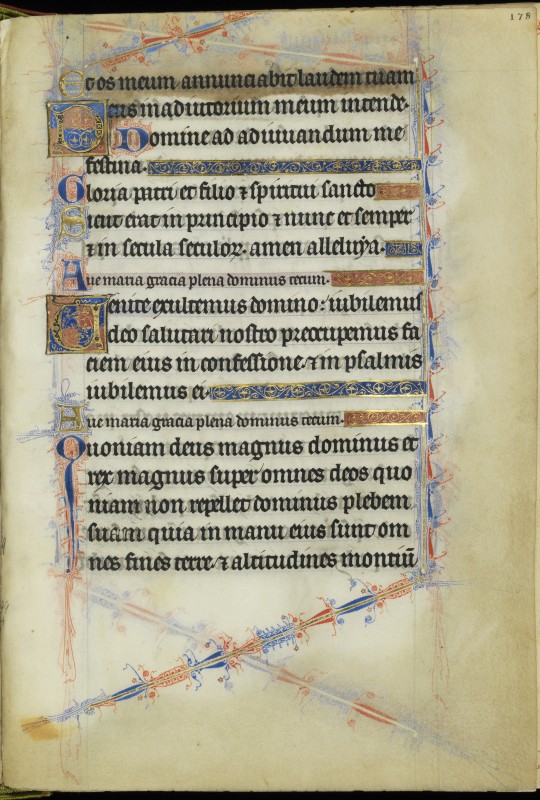 178
Et os meum annunciabit laudem tuam
Deus in adiutorium meum intende.
Domine ad adiuuandum me
festina.
Gloria patri et filio ⁊ spiritui sancto
Sicut erat in principio ⁊ nunc et semper
⁊ in secula seculoꝝ. amen alleluya.
Aue maria gracia plena dominus tecum.
Uenite exultemus domino: iubilemus
deo salutari nostro preoccupemus fa
ciem eius in confessione. ⁊ in psalmis
iubilemus ei.
Aue maria gracia plena dominus tecum.
Quoniam deus magnus dominus et
rex magnus super omnes deos quo
niam non repellet dominus plebem
suam quia in manu eius sunt om
nes fines terre. ⁊ altitudines montiū